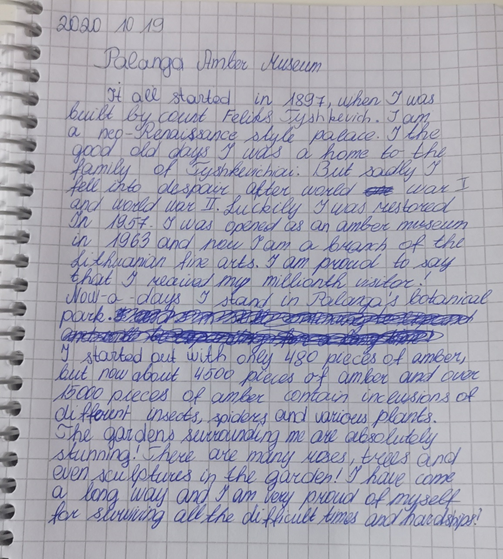 2020 10 19
Palanga Amber Museum
It all started in 1897, when I was
built by count Feliks Tyshkevich. I am
a neo-Renaissance style palace. I the
good old days I was a home to the
family of Tyshkevichai. But sadly I
fell into despair after world war I
and world war II. Luckily I was restored
In 1957. I was opened as an amber museum
in 1963 and now I am a branch of the
Lithuanian fine arts. I am proud to say
that I recived my millionth visitor!
Now-a-days I stand in Palanga's botanical
park.
I started out with only 480 pieces of amber,
but now about 4500 pieces of amber and over
15000 pieces of amber contain inclusions of
different insects, spiders and various plants.
The gardens surrounding me are absolutely
stunning! There are many roses, trees and
even sculptures in the garden! I have come
a long way and I am very proud of myself
for surviving all the difficult times and hardships!